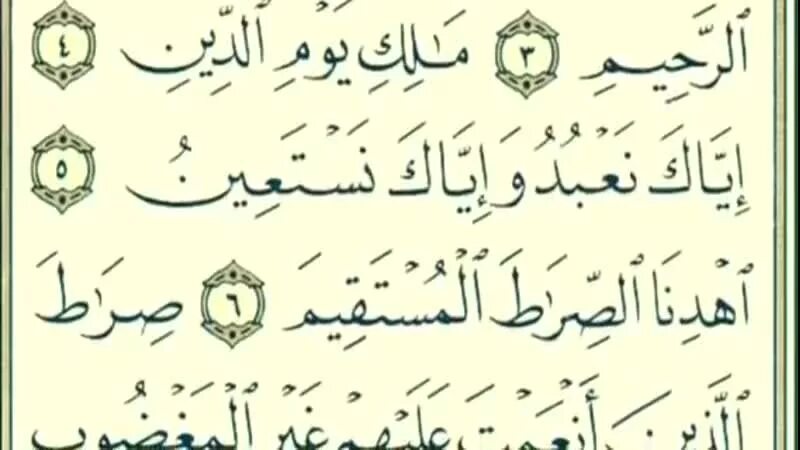 ٱلرَّحِيمِ ٣ مَٰلِكِ يَوْمِ ٱلدِّينِ ٤
إِيَّاكَ نَعْبُدُ وَإِيَّاكَ نَسْتَعِينُ ٥
ٱهْدِنَا ٱلصِّرَٰطَ ٱلْمُسْتَقِيمَ ٦ صِرَٰطَ
ٱلَّذِينَ أَنْعَمْتَ عَلَيْهِمْ غَيْرِ ٱلْمَغْضُوبِ